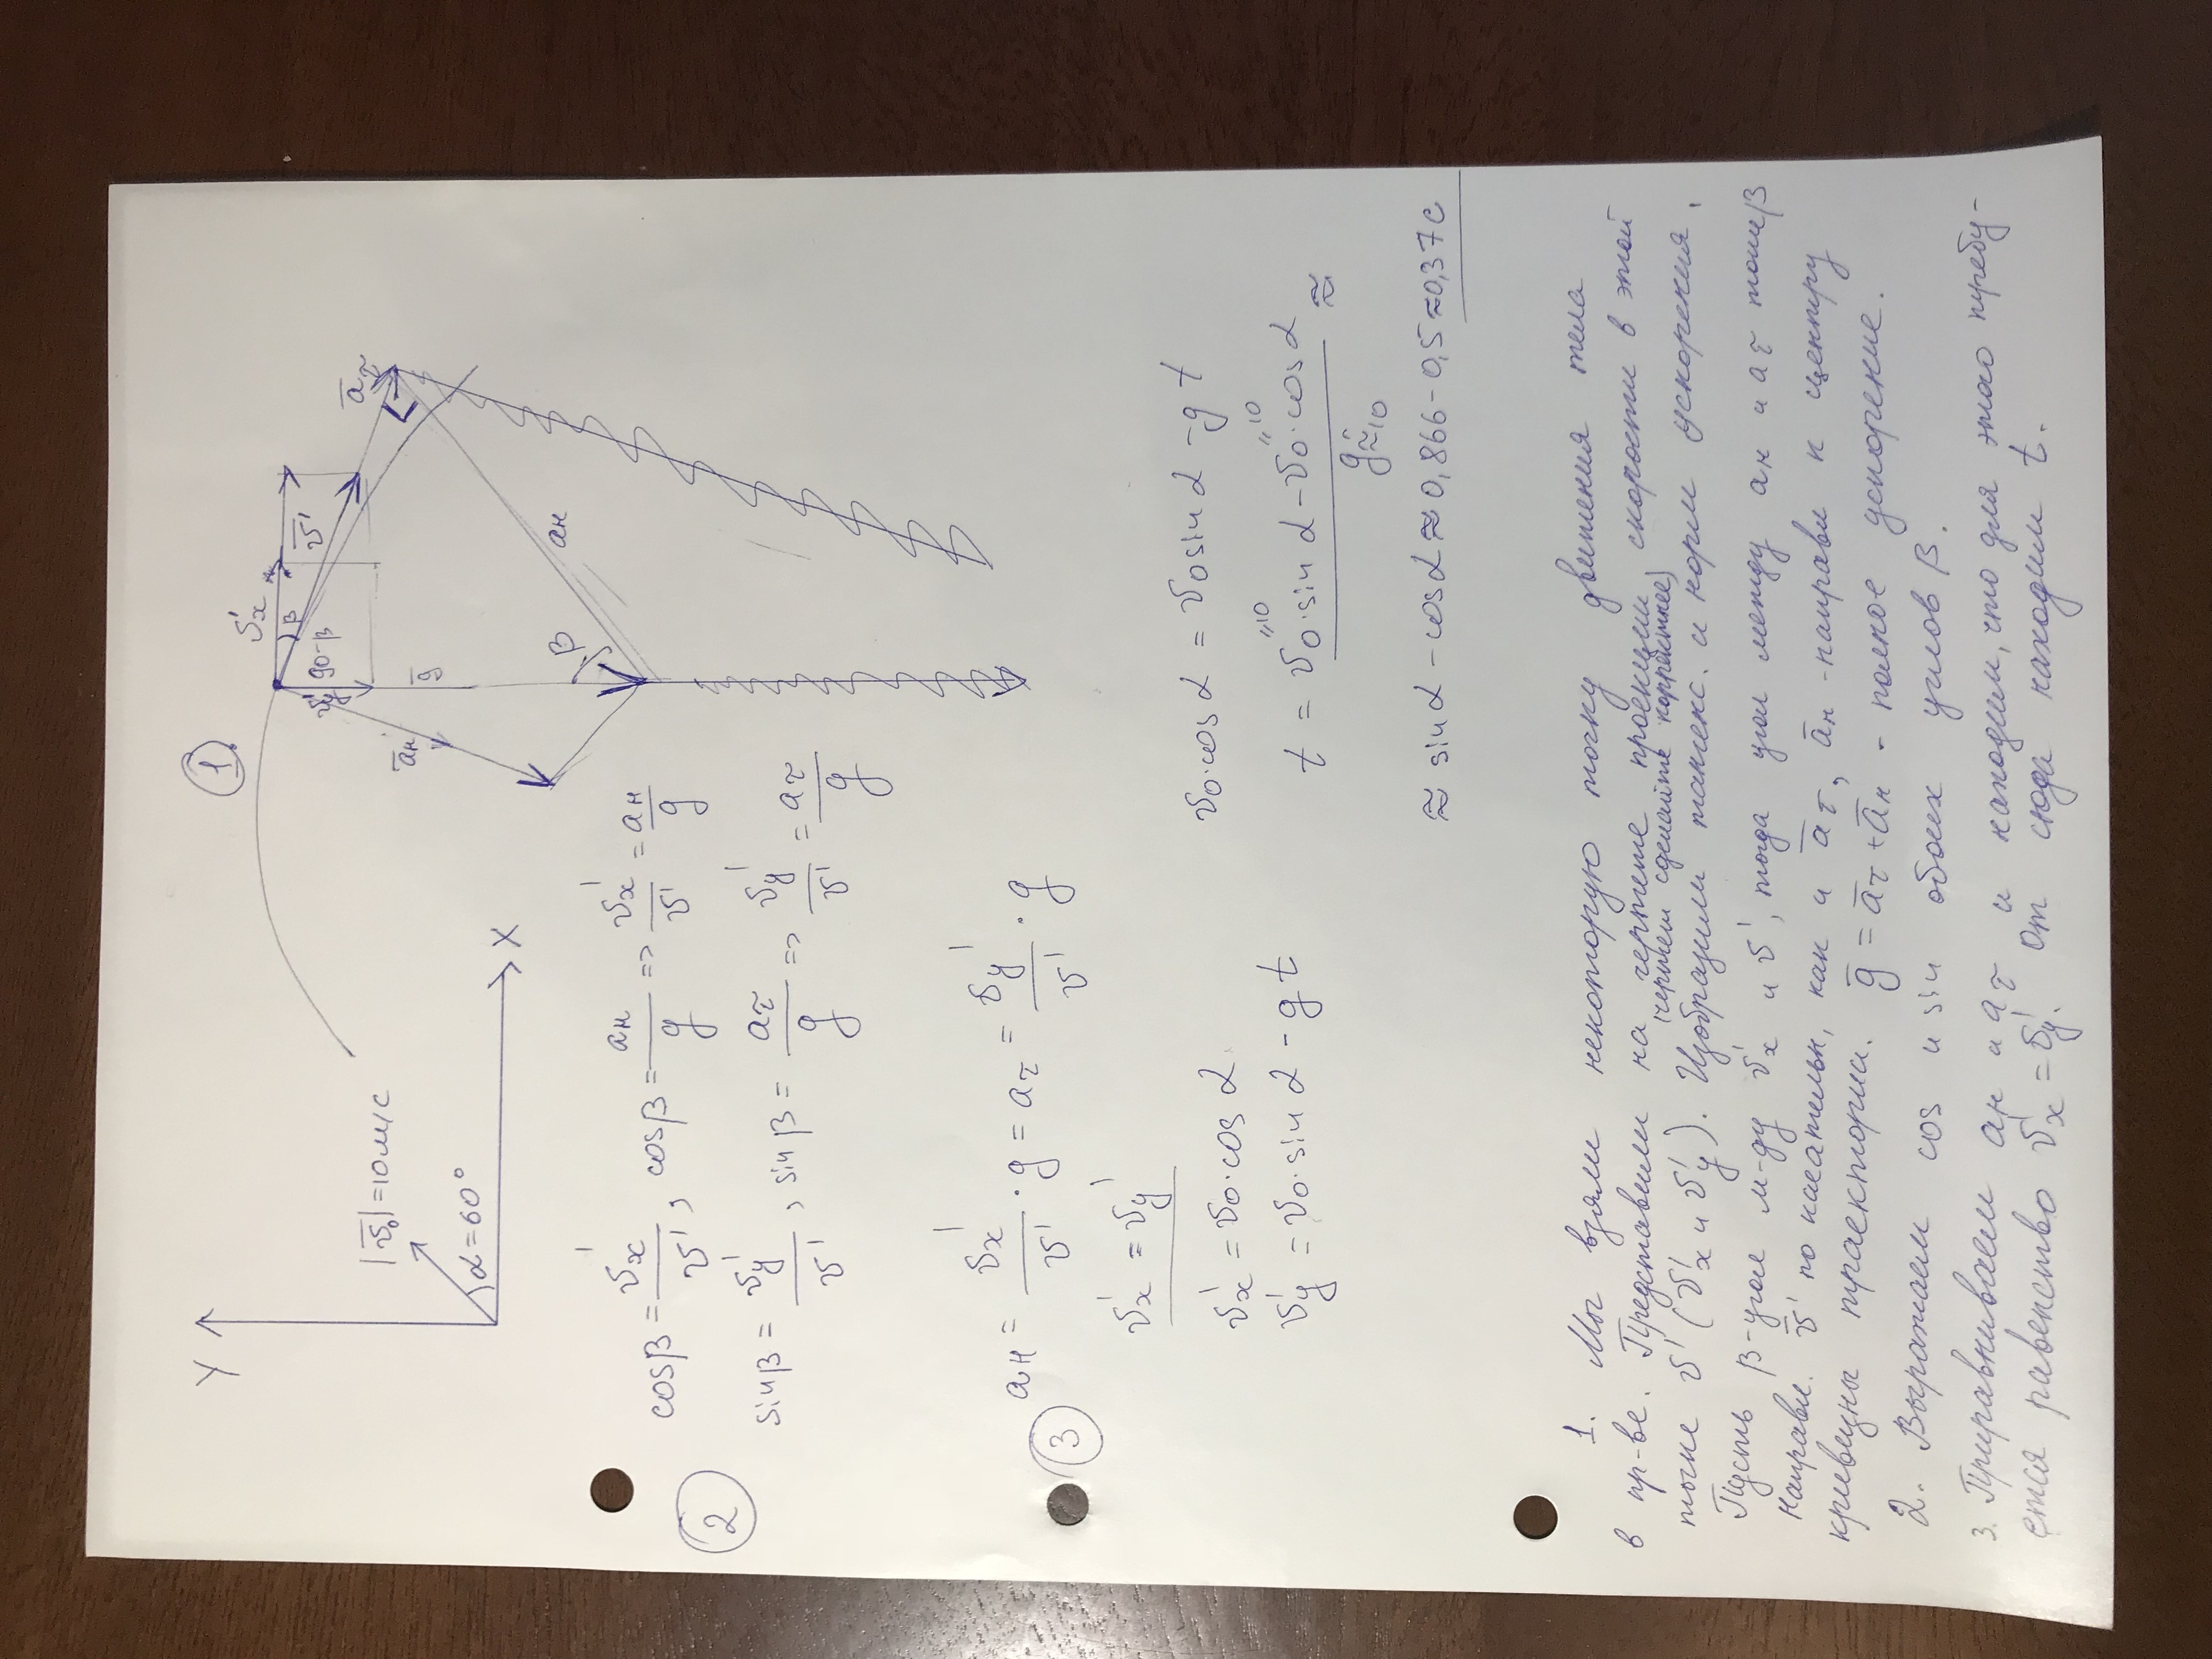 ①
Y
X
|v̅₀|=10м/с
α=60°
v̅'x
β
90-β
v̅'y
v̅'
a̅τ
a̅н
g̅
aн
β
② cosβ = v'x/v', cosβ = aн/g => v'x/v' = aн/g
sinβ = v'y/v', sinβ = aτ/g => v'y/v' = aτ/g
③ aн = v'x/v' · g = aτ = v'y/v' · g
v'x = v'y
v'x = v₀·cosα
v'y = v₀·sinα - gt
v₀·cosα = v₀sinα - gt
t = (v₀"10·sinα - v₀"10·cosα)/g≈10 ≈
≈ sinα - cosα ≈ 0,866 - 0,5 ≈ 0,37с
1. Мы взяли некоторую точку движения тела
в пр-ве. Представили на чертеже проекции скорости в этой
(чертеж сделайте корректнее)
точке v' (v'x и v'y). Изобразили тангенс. и норм ускорения.
Пусть β-угол м-ду v'x и v', тогда угол между aн и aτ тоже β
направл. v̅' по касательн, как и a̅τ, a̅н - направл к центру
кривизны траектории. g̅ = a̅τ + a̅н - полное ускорение.
2. Выражаем cos и sin обоих углов β.
3. Приравниваем aн и aτ и находим, что для этого требу-
ется равенство v'x = v'y. От сюда находим t.